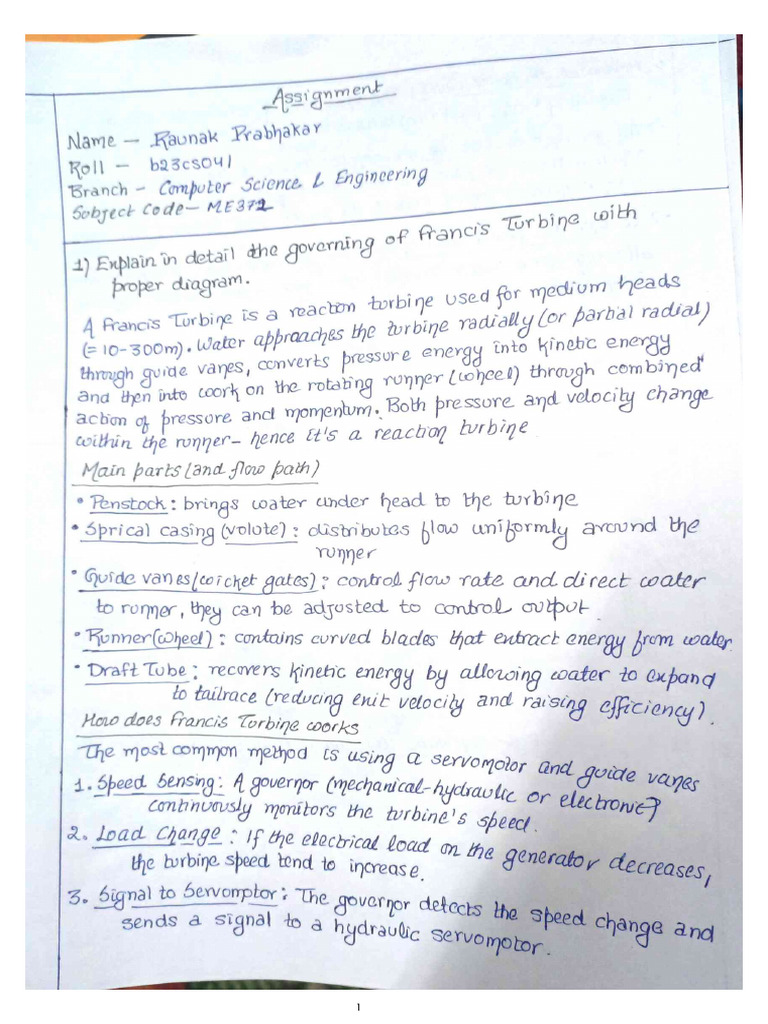 Assignment
Name – Raunak Prabhakar
Roll – b23cs041
Branch – Computer Science & Engineering
Sobject Code – ME372
1) Explain in detail the governing of Francis Turbine with
proper diagram.
A Francis Turbine is a reaction turbine used for medium heads
(= 10-300m). Water approaches the turbine radially (or partial radial)
through guide vanes, converts pressure energy into kinetic energy
and then into work on the rotating runner (wheel) through combined
action of pressure and momentum. Both pressure and velocity change
within the runner – hence it's a reaction turbine
Main parts (and flow path)
• Penstock : brings water under head to the turbine
• Sprical casing (volute) : distributes flow uniformly around the
runner
• Guide vanes (wicket gates) : control flow rate and direct water
to runner, they can be adjusted to control output.
• Runner (wheel) : contains curved blades that extract energy from water
• Draft Tube : recovers kinetic energy by allowing water to expand
to tailrace (reducing exit velocity and raising efficiency).
How does Francis Turbine works
The most common method is using a servomotor and guide vanes
1. Speed Sensing : A governor (mechanical-hydraulic or electronic)
continuously monitors the turbine's speed.
2. Load Change : If the electrical load on the generator decreases,
the turbine speed tend to increase.
3. Signal to Servomotor : The governor detects the speed change and
sends a signal to a hydraulic servomotor.
1